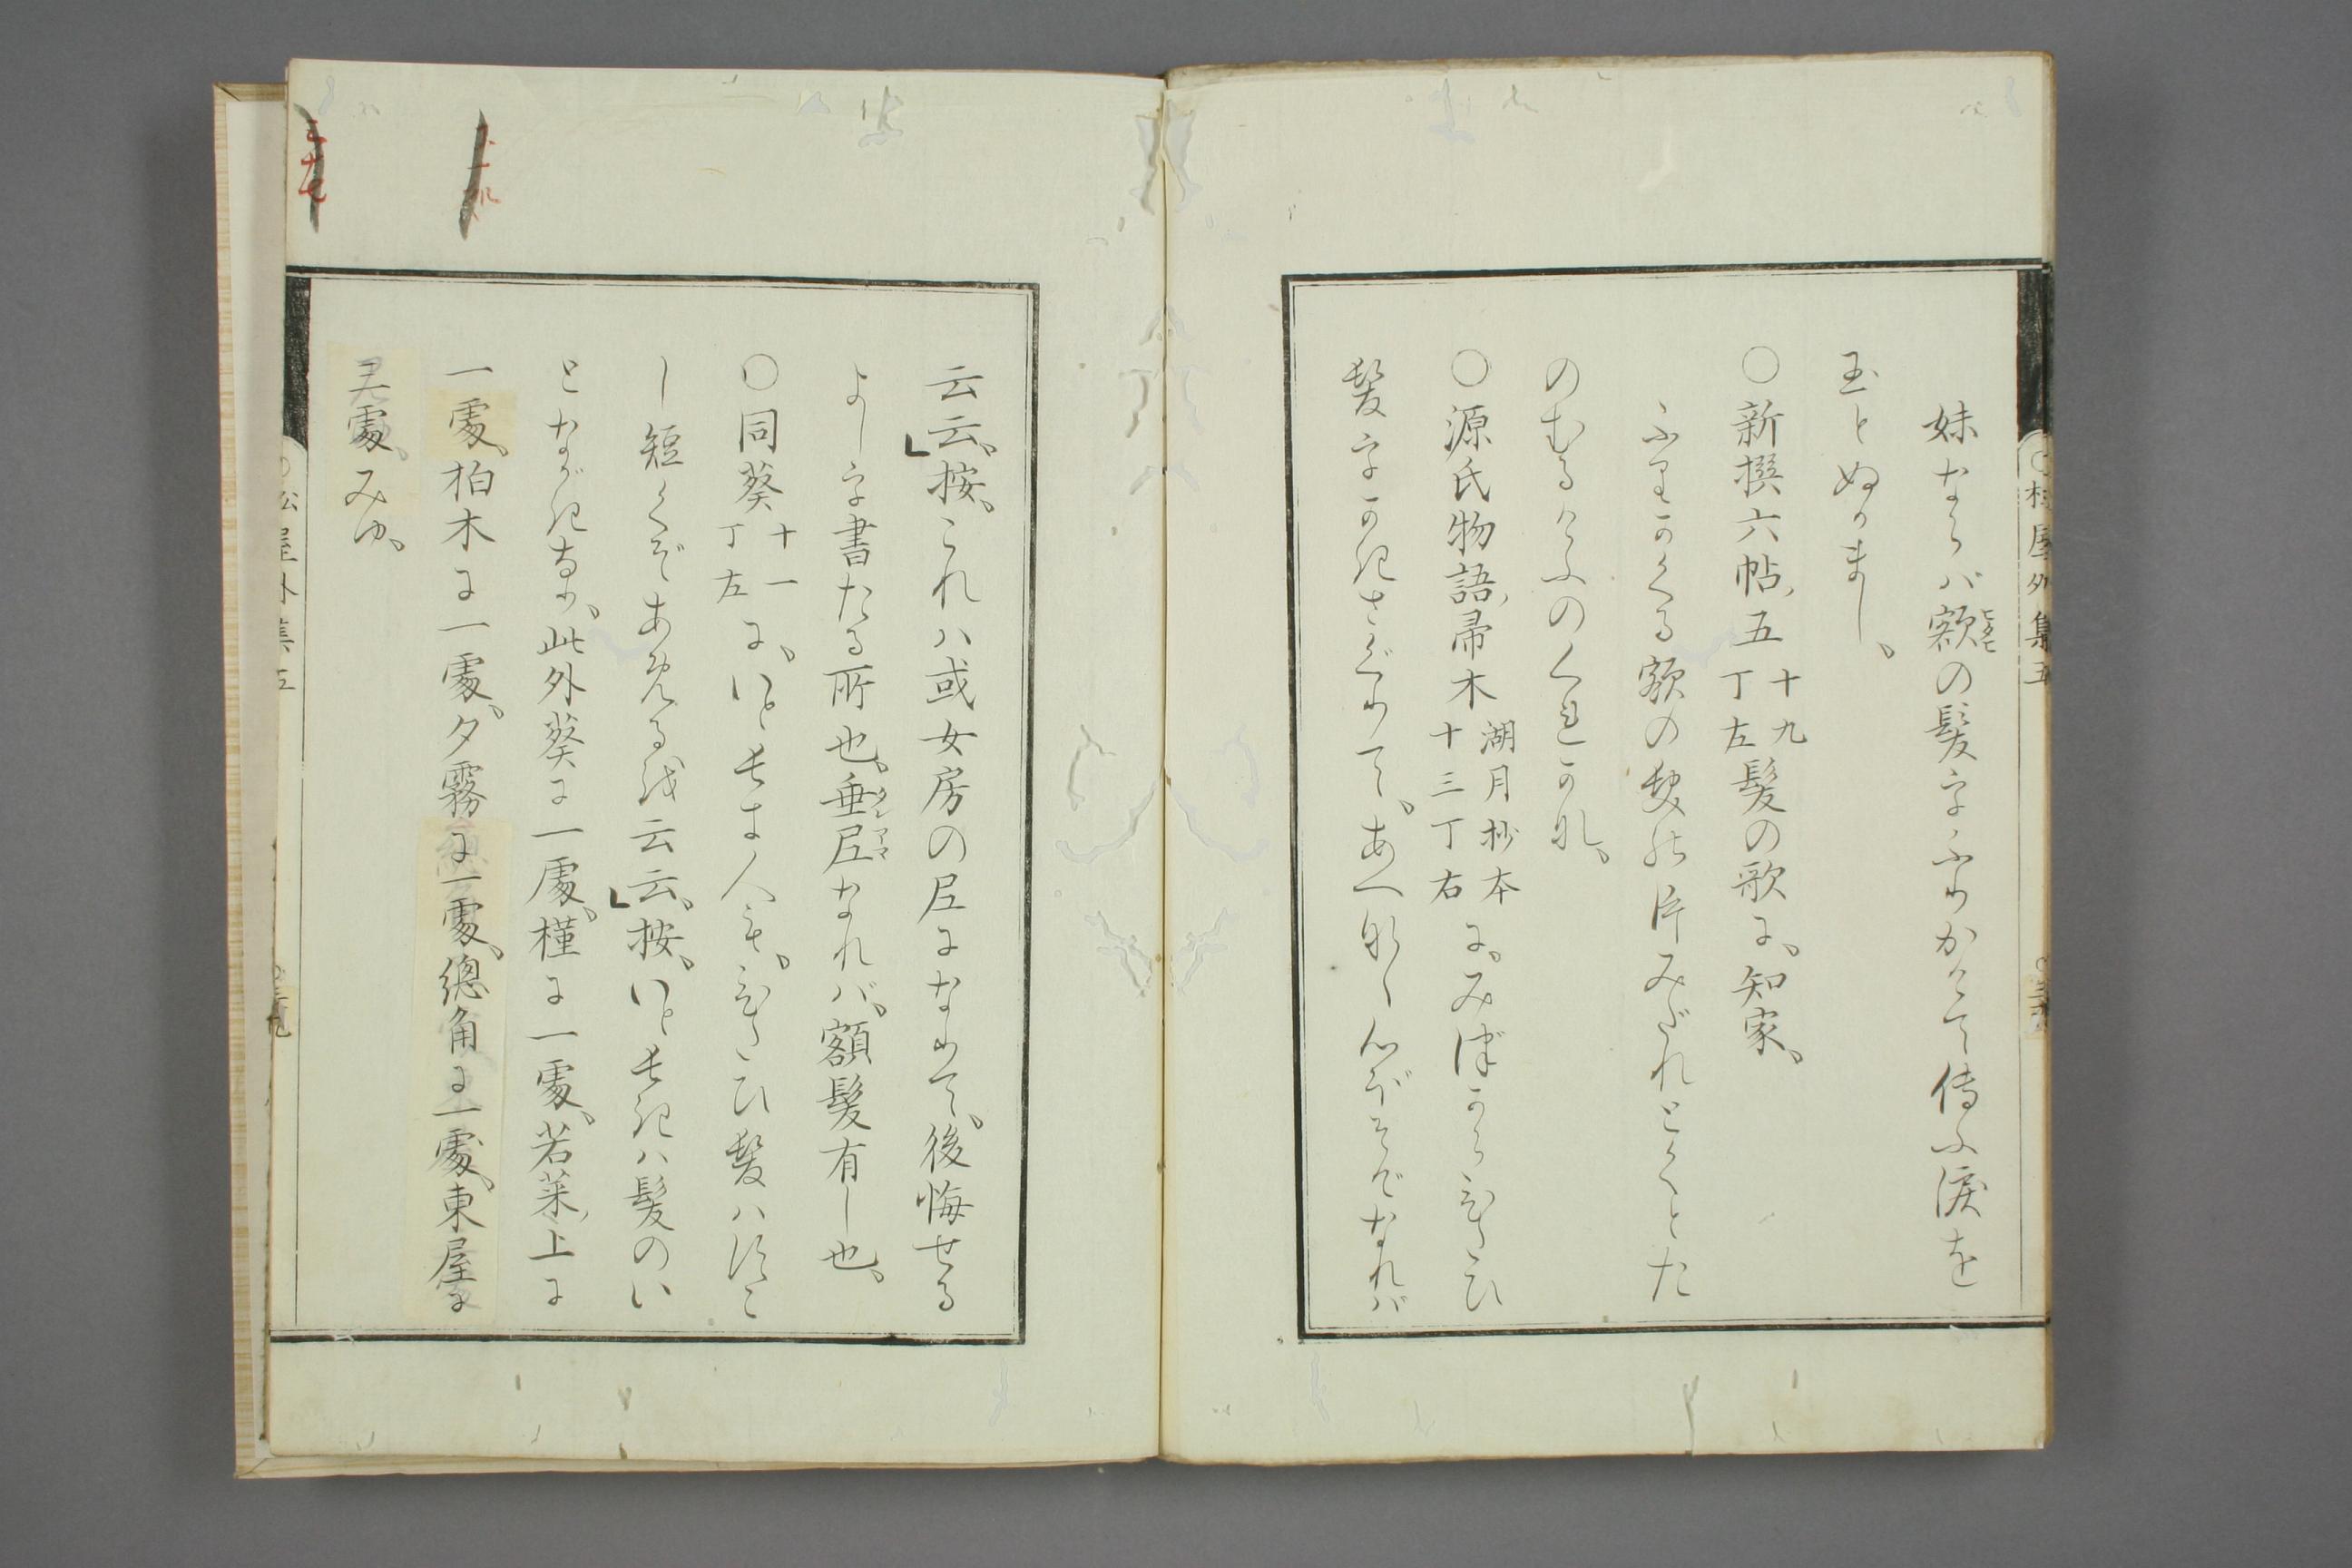 妹ならバ額の髪をふりかけて傳ふ涙を
ヒタヒ
玉とぬかまし、
○新撰六帖五 十九丁左 髪の歌に、知家、
ふりかくる額の髪の片みだれとくとた
のむるけふのくれかな、
○源氏物語、帚木 湖月抄本十三丁右 に、みづからひたひ
髪をかきさぐりて、あへなく心ぼそければ
云云、按、これハ或女房の尼になりて、後悔せる
よしを書たる所也、垂尼なれバ、額髪有し也、
タレアマ
○同葵 十一丁左 に、いと長き人も、ひたひ髪ハすこ
し短くぞあめるを云云、按、いと長きハ髪のい
とながきなり、此外葵に一處、槿に一處、若菜上に
一處、柏木に一處、夕霧に一處、總角に一處、東屋に
處、みゆ、
松屋外集五
松屋外集五